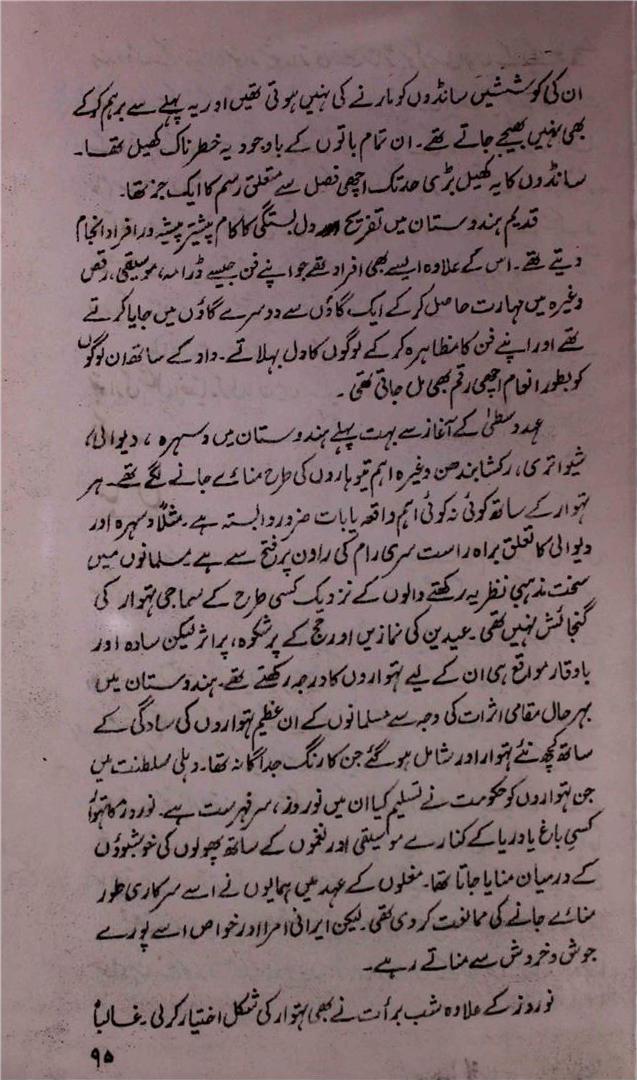 ان کی کوششیں سانڈوں کو مارنے کی نہیں ہوتی تھیں اور یہ پہلے سے برہم کرکے
بھی نہیں بھیجے جاتے تھے۔ ان تمام باتوں کے باوجود یہ خطرناک کھیل تھا۔
سانڈوں کا یہ کھیل بڑی حد تک اچھی فصل سے متعلق رسم کا ایک جز تھا۔
قدیم ہندوستان میں تفریح اور دل بستگی کا کام پیشتر پیشہ ور افراد انجام
دیتے تھے۔ اس کے علاوہ ایسے بھی افراد تھے جو اپنے فن جیسے ڈرامہ، موسیقی، رقص
وغیرہ میں مہارت حاصل کرکے ایک گاؤں سے دوسرے گاؤں میں جایا کرتے
تھے اور اپنے فن کا مظاہرہ کرکے لوگوں کا دل بہلاتے۔ داد کے ساتھ ان لوگوں
کو بطور انعام اچھی رقم بھی مل جاتی تھی۔
عہد وسطیٰ کے آغاز سے بہت پہلے ہندوستان میں دسہرہ، دیوالی،
شیواتری، رکشا بندھن وغیرہ اہم تیوہاروں کی طرح منائے جانے لگے تھے۔ ہر
تہوار کے ساتھ کوئی نہ کوئی اہم واقعہ یا بات ضرور وابستہ ہے۔ مثلاً دسہرہ اور
دیوالی کا تعلق براہ راست سری رام کی راون پر فتح سے ہے۔ مسلمانوں میں
سخت مذہبی نظریہ رکھنے والوں کے نزدیک کسی طرح کے سماجی تہوار کی
گنجائش نہیں تھی۔ عیدین کی نمازیں اور حج کے پرشکوہ، پراثر لیکن سادہ اور
باوقار مواقع ہی ان کے لیے تہواروں کا درجہ رکھتے تھے۔ ہندوستان میں
بہرحال مقامی اثرات کی وجہ سے مسلمانوں کے ان عظیم تہواروں کی سادگی کے
ساتھ کچھ نئے تہوار اور شامل ہوگئے جن کا رنگ جداگانہ تھا۔ دہلی سلطنت میں
جن تہواروں کو حکومت نے تسلیم کیا ان میں نوروز، سرفہرست ہے۔ نوروز کا تہوار
کسی باغ یا دریا کے کنارے موسیقی اور نغموں کے ساتھ پھولوں کی خوشبوؤں
کے درمیان منایا جاتا تھا۔ مغلوں کے عہد میں ہمایوں نے اسے سرکاری طور
منائے جانے کی ممانعت کردی تھی۔ لیکن ایرانی امرا اور خواص اسے پورے
جوش و خروش سے مناتے رہے۔
نوروز کے علاوہ شب برأت نے بھی تہوار کی شکل اختیار کرلی۔ غالباً
۹۵